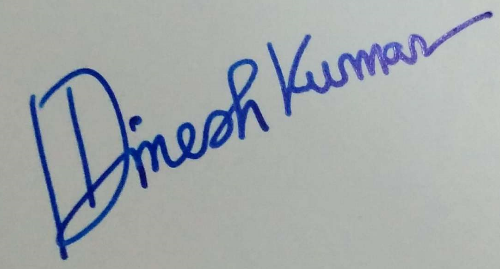 Dinesh Kumar